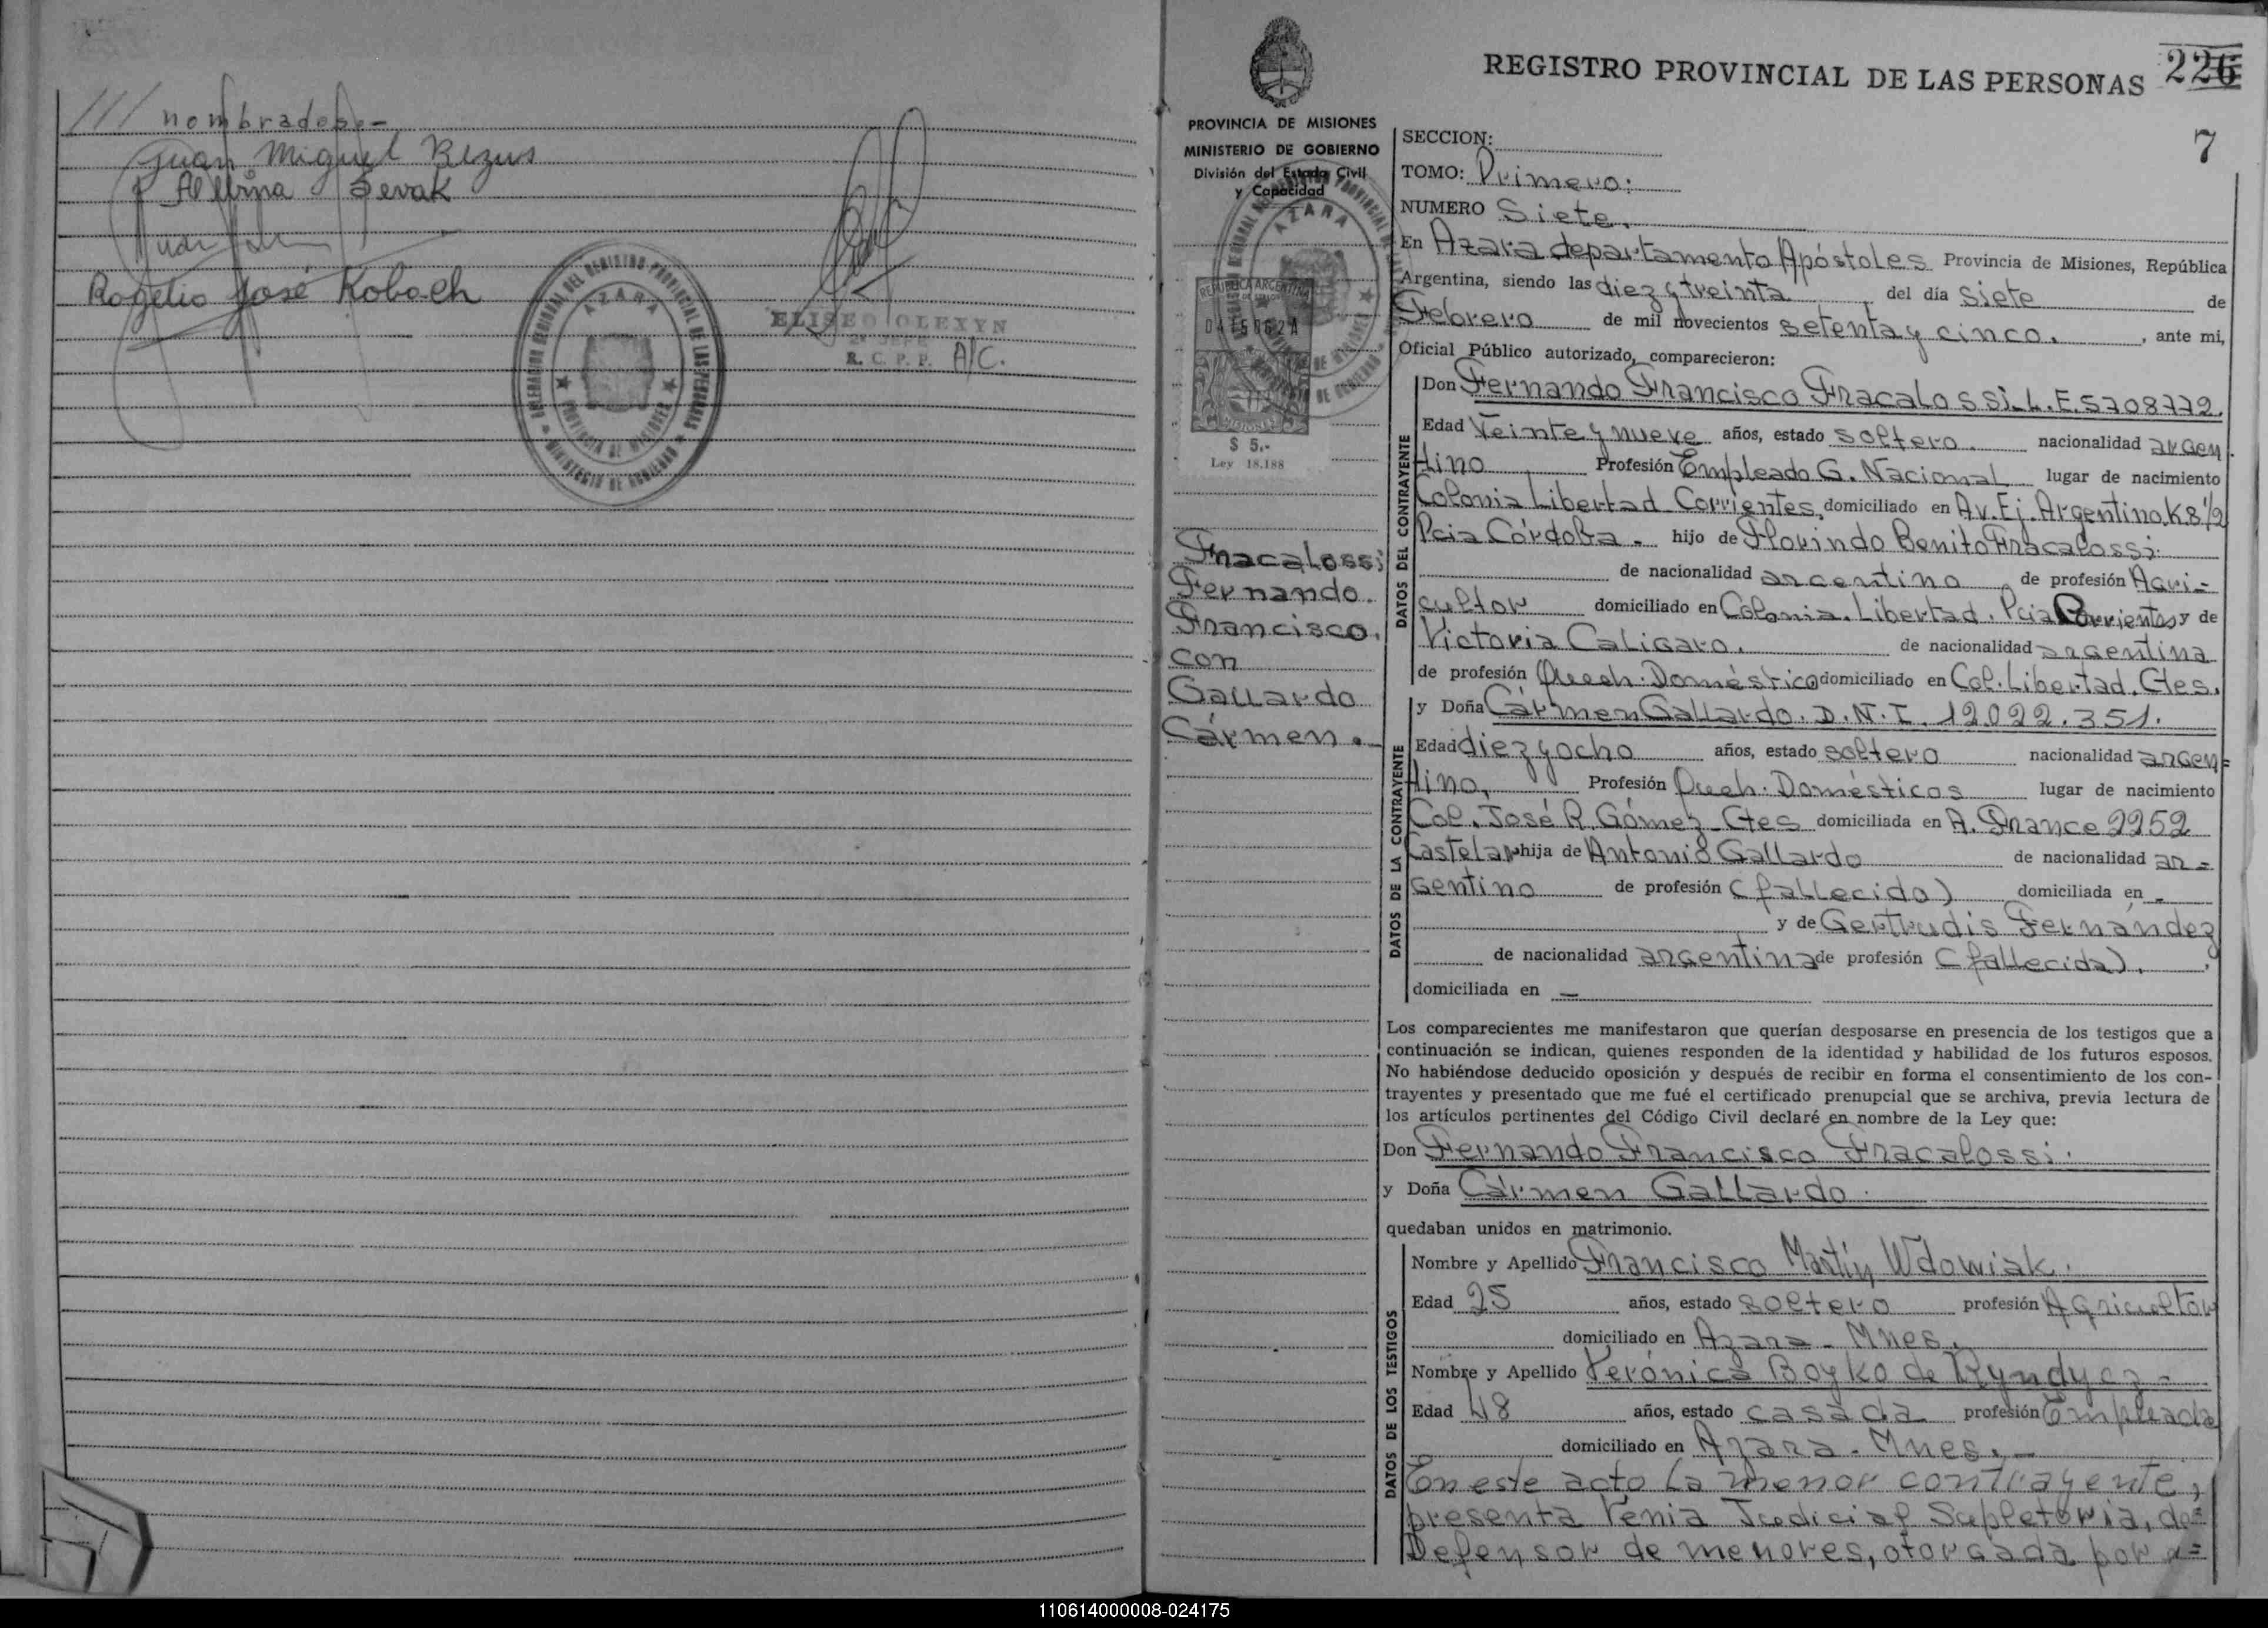 /// nombrados.-
Juan Miguel Bezus
Albina Sevak
Rogelio José Koboch
DELEGACION SECCIONAL DEL REGISTRO PROVINCIAL DE LAS PERSONAS
AZARA
PROVINCIA DE MISIONES
MINISTERIO DE GOBIERNO
ELISEO OLEXYN
2º JEFE
R. C. P. P. A/C.
REGISTRO PROVINCIAL DE LAS PERSONAS 226
7
PROVINCIA DE MISIONES
MINISTERIO DE GOBIERNO
División del Estado Civil
y Capacidad
AZARA
REPUBLICA ARGENTINA
$ 5.-
Ley 18.188
Fracalossi
Fernando.
Francisco.
con
Gallardo
Cármen.-
SECCION:
TOMO: Primero:
NUMERO Siete.
En Azara departamento Apóstoles Provincia de Misiones, República
Argentina, siendo las diez y treinta del día siete de
Febrero de mil novecientos setenta y cinco. , ante mi,
Oficial Público autorizado, comparecieron:
DATOS DEL CONTRAYENTE
Don Fernando Francisco Fracalossi. L.E. 5708772.
Edad Veinte y nueve años, estado soltero. nacionalidad argen
tino Profesión Empleado G. Nacional lugar de nacimiento
Colonia Libertad Corrientes, domiciliado en Av. Ej. Argentino K8½
Pcia Córdoba - hijo de Florindo Benito Fracalossi.
de nacionalidad argentino de profesión Agri-
cultor domiciliado en Colonia Libertad. Pcia Corrientes y de
Victoria Caligaro. de nacionalidad argentina
de profesión Queh. Doméstico domiciliado en Col. Libertad. Ctes.
DATOS DE LA CONTRAYENTE
y Doña Cármen Gallardo. D.N.I. 12.022.351.
Edad diez y ocho años, estado soltero nacionalidad argen=
tino, Profesión Queh. Domésticos lugar de nacimiento
Col. José R. Gómez-Ctes domiciliada en A. France 2252
Castelar hija de Antonio Gallardo de nacionalidad ar=
gentino de profesión (fallecido) domiciliada en -
y de Gertrudis Fernández
de nacionalidad argentina de profesión (fallecida).
domiciliada en -
Los comparecientes me manifestaron que querían desposarse en presencia de los testigos que a
continuación se indican, quienes responden de la identidad y habilidad de los futuros esposos.
No habiéndose deducido oposición y después de recibir en forma el consentimiento de los con-
trayentes y presentado que me fué el certificado prenupcial que se archiva, previa lectura de
los artículos pertinentes del Código Civil declaré en nombre de la Ley que:
Don Fernando Francisco Fracalossi.
y Doña Cármen Gallardo.
quedaban unidos en matrimonio.
DATOS DE LOS TESTIGOS
Nombre y Apellido Francisco Martín Wdowiak.
Edad 25 años, estado soltero profesión Agricultor
domiciliado en Azara - Mnes.
Nombre y Apellido Verónica Boyko de Ryndycz-
Edad 48 años, estado casada profesión Empleada
domiciliado en Azara - Mnes.-
En este acto la menor contrayente,
presenta Venia Judicial Supletoria, de=
Defensor de menores, otorgada por
110614000008-024175